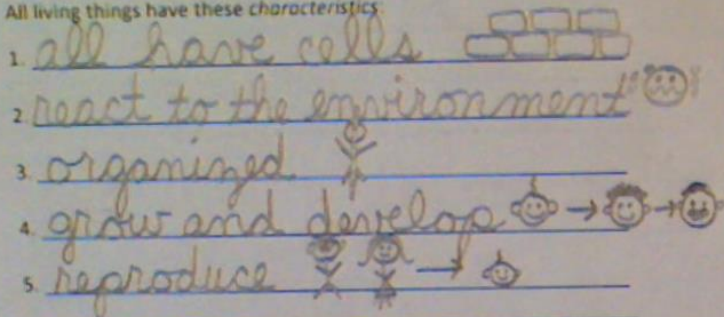 All living things have these characteristics:
1. all have cells
2. react to the environment
3. organized
4. grow and develop
5. reproduce